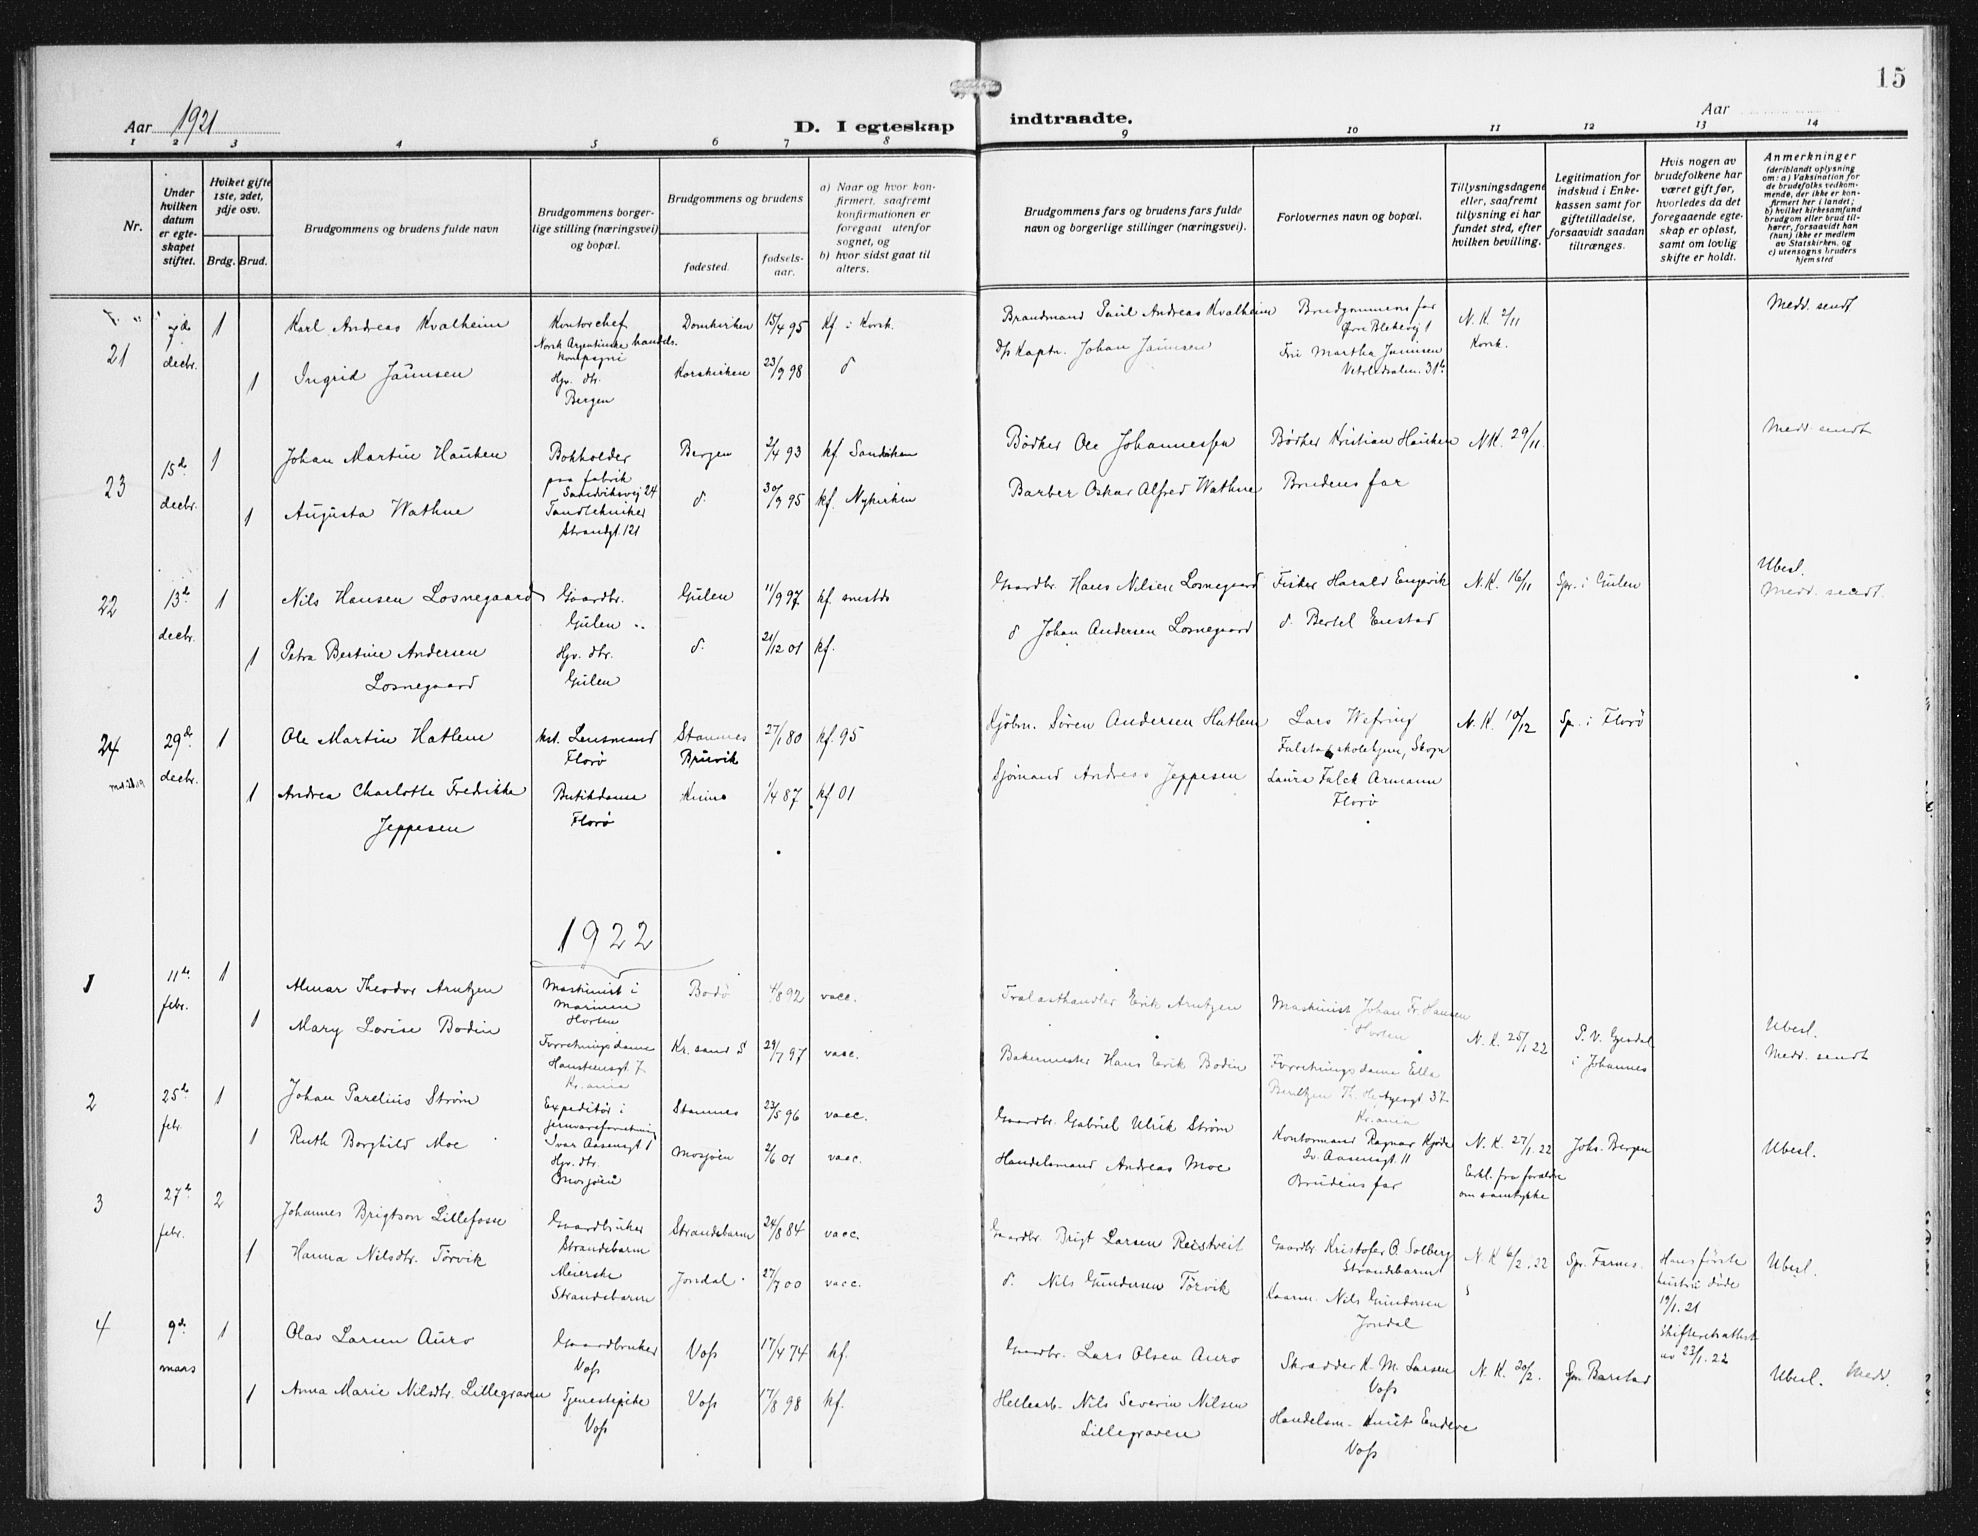 15
Aar 1921
D. I egteskap indtraadte.
Aar
1 2 3 4 5 6 7 8 9 10 11 12 13 14
Nr.
Under hvilken datum er egteskapet stiftet.
Hviket gifte 1ste, 2det, 3dje osv.
Brdg. Brud.
Brudgommens og brudens fulde navn
Brudgommens borgerlige stilling (næringsvei) og bopæl.
Brudgommens og brudens
fødested.
fødselsaar.
a) Naar og hvor konfirmert, saafremt konfirmationen er foregaat utenfor sognet, og
b) hvor sidst gaat til alters.
Brudgommens fars og brudens fars fulde navn og borgerlige stillinger (næringsvei).
Forlovernes navn og bopæl.
Tillysningsdagene eller, saafremt tillysning ei har fundet sted, efter hvilken bevilling.
Legitimation for indskud i Enkekassen samt for giftetilladelse, forsaavidt saadan tiltrænges.
Hvis nogen av brudefolkene har været gift før, hvorledes da det foregaaende egteskap er opløst, samt om lovlig skifte er holdt.
Anmerkninger
(deriblandt oplysning om: a) Vaksination for de brudefolks vedkommende, der ikke er konfirmert her i landet;
b) hvilket kirkesamfund brudgom eller brud tilhører, forsaavidt han (hun) ikke er medlem av Statskirken, og
c) utensogns bruders hjemsted
21 7de decbr. 1 Karl Andreas Kvalheim Kontorchef Norsk Argentinske handels. kompagni Domkirken 15/4 95 Kf i Korsk. Brandmand Paul Andreas Kvalheim Brudgommens far Øvre Blekevej 1 N. K. 2/11 Korsk. Medd. sendt
1 Ingrid Jaunsen Hjv. dtr. Bergen Korskirken 23/9 98 d D/s Kaptn. Johan Jaunsen Fru Martha Jaunsen
23 15de decbr. 1 Johan Martin Hauken Bokholder paa fabrik Sandviksvej 24 Bergen 2/4 93 kf Sandviken Bødker Ole Johannessen Bødker Kristian Hauken N.K. 29/11. Medd. sendt
1 Augusta Wathne Tandtekniker Strandgt. 121 d. 30/9 95 kf. Nykirken Barber Oskar Alfred Wathne Brudens far
22 13de decbr. 1 Nils Hansen Losnegaard Gaardbr. Gulen 11/9 97 kf. smstds Gaardbr. Hans Nilsen Losnegaard Fisker Harald Engevik N.K. 16/11 Spr. i Gulen Ubesl. Medd. sendt.
1 Petra Bertine Andersen Losnegaard Hjv. dtr. Gulen d. 21/12 01 kf. d Johan Andersen Losnegaard d. Bertel Enestad
24 29de decbr. 1 Ole Martin Hatlem kst. Lensmand Florø Stamnes Bruvik 27/1 80 kf. 95 Kjøbm. Søren Andersen Hatlem Lars Wefring N.K. 10/12 Sp. i Florø
1 Andrea Charlotte Fredikke Jeppesen Butikdame Florø Kinn 1/4 87 kf 01 Sjømand Andreas Jeppesen Laura Falck Armann Florø
1922
1 11te febr. 1 Almar Theodor Arntzen Maskinist i Marinen Horten Bodø 4/8 92 vacc. Trælasthandler Erik Arntzen Maskinist Johan Fr. Hansen Horten N. K. 25/1 22 P. V. Gjesdal i Johannes Ubesl. Medd. sendt
1 Mary Lovise Bodin Forretningsdame Hansteensgt 7 Kr.ania Kr. sand S 29/7 97 vacc. Bakermester Hans Erik Bodin Forretningsdame Ella Berntzen Kr.ania
2 25de febr. 1 Johan Parelius Strøm Expeditør i jernvareforretning Ivar Aasensgt 1 Stamnes 23/5 96 vacc. Gaardbr. Gabriel Ulrik Strøm Kontormand Ragnar Kjøde Iv. Aasensgt 11 N. K. 27/1 22 Johs. Bergen Ubesl.
1 Ruth Borghild Moe Hjv. dtr. Mosjøen Mosjøen 2/6 01 vacc. Handelsmand Andreas Moe Brudens far Erkl. fra foreldre om samtykke
3 27de febr. 2 Johannes Brigtson Lillefosse Gaardbruker Strandebarm Strandebarm 24/8 84 vacc. Gaardbr. Brigt Larsen Reistveit Gaardbr. Kristofer O. Solberg Strandebarm N. K 6/2. 22 Spr. Farnes. Hans første hustru døde 19/1. 21 Skifteretsattest av 23/1. 22 Ubesl.
1 Hanna Nilsdtr. Torvik Meierske Strandebarm Jondal 27/7 00 vacc. d. Nils Gundersen Torvik Kaarm. Nils Gundersen Jondal
4 9de mars 1 Olav Larsen Auro Gaardbruker Voss Voss 17/4 74 kf. Gaardbr. Lars Olsen Auro Skrædder K. M. Larsen Voss N. K. 20/2. Spr. Barstad Ubesl. Medd.
1 Anna Marie Nilsdtr. Lillegraven Tjenestepike Voss Voss 17/8 98 kf. Hellearb. Nils Severin Nilsen Lillegraven Handelsm. Knut Endeve Voss